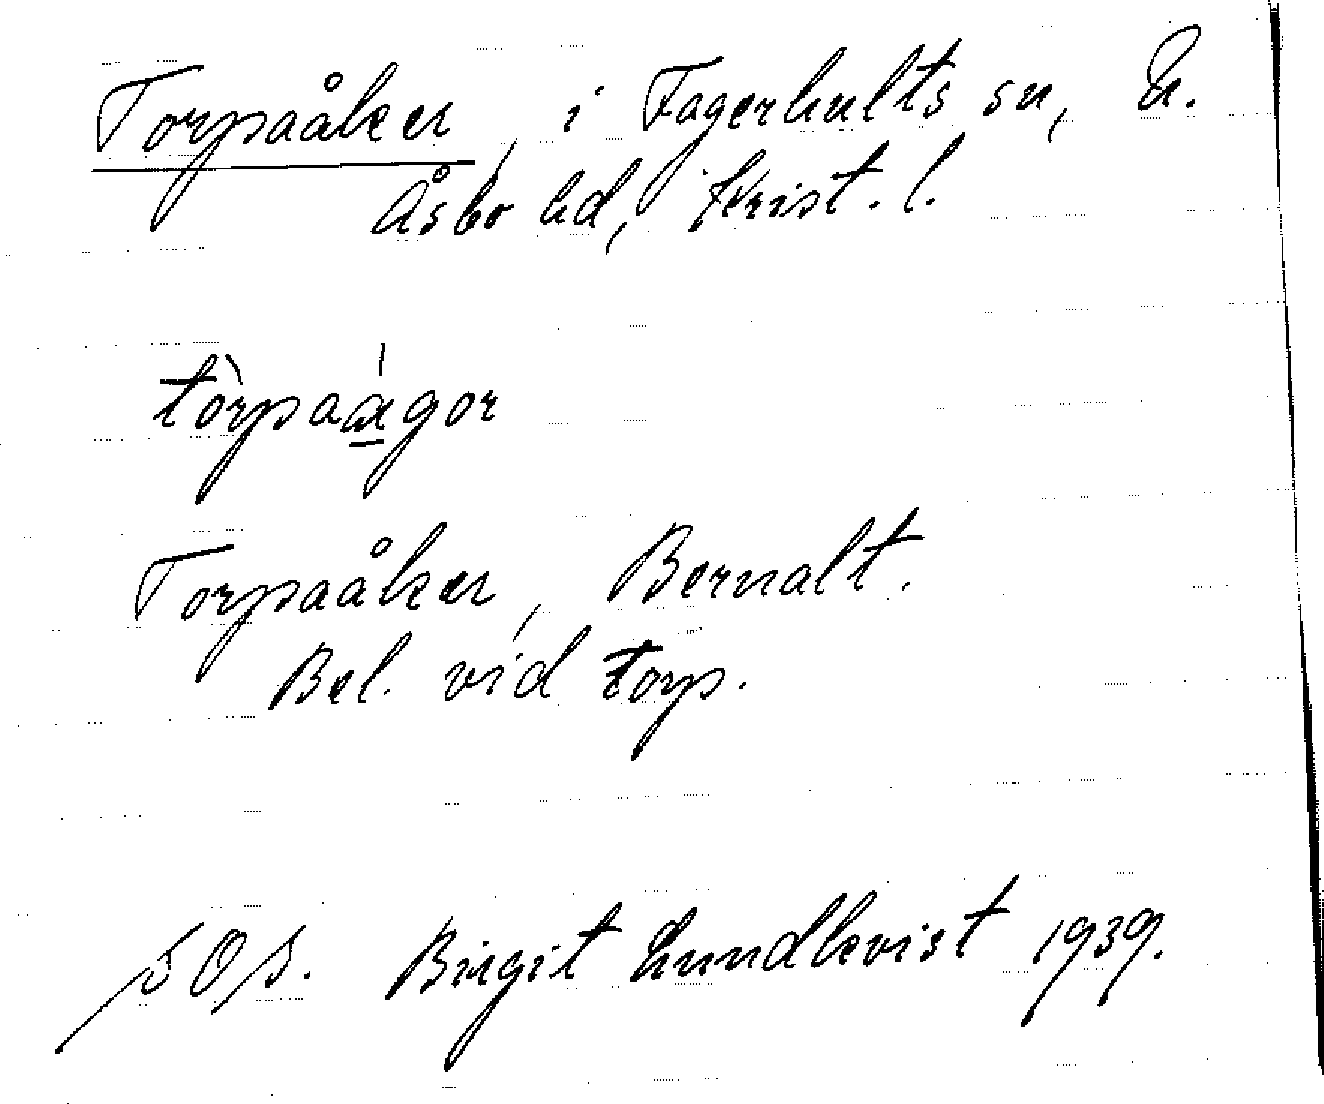 Torpaåker, i Fagerhults sn, N.
Åsbo hd, Krist. l.
tòrpaágor
Torpaåker, Bernalt.
Bel. vid Torp.
Birgit Lundkvist 1939.